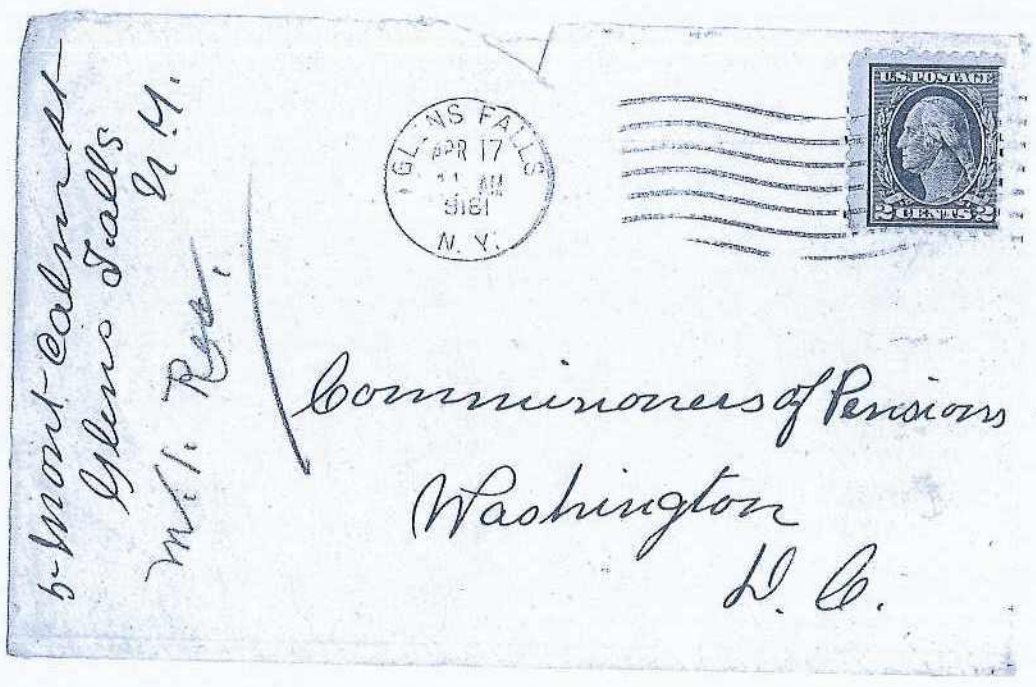 5- Mont Calm st
Glens Falls
N.Y.
GLENS FALLS
APR 17
11 AM
N. Y.
U.S. POSTAGE
2 CENTS 2
Commissioners of Pensions
Washington
D. C.